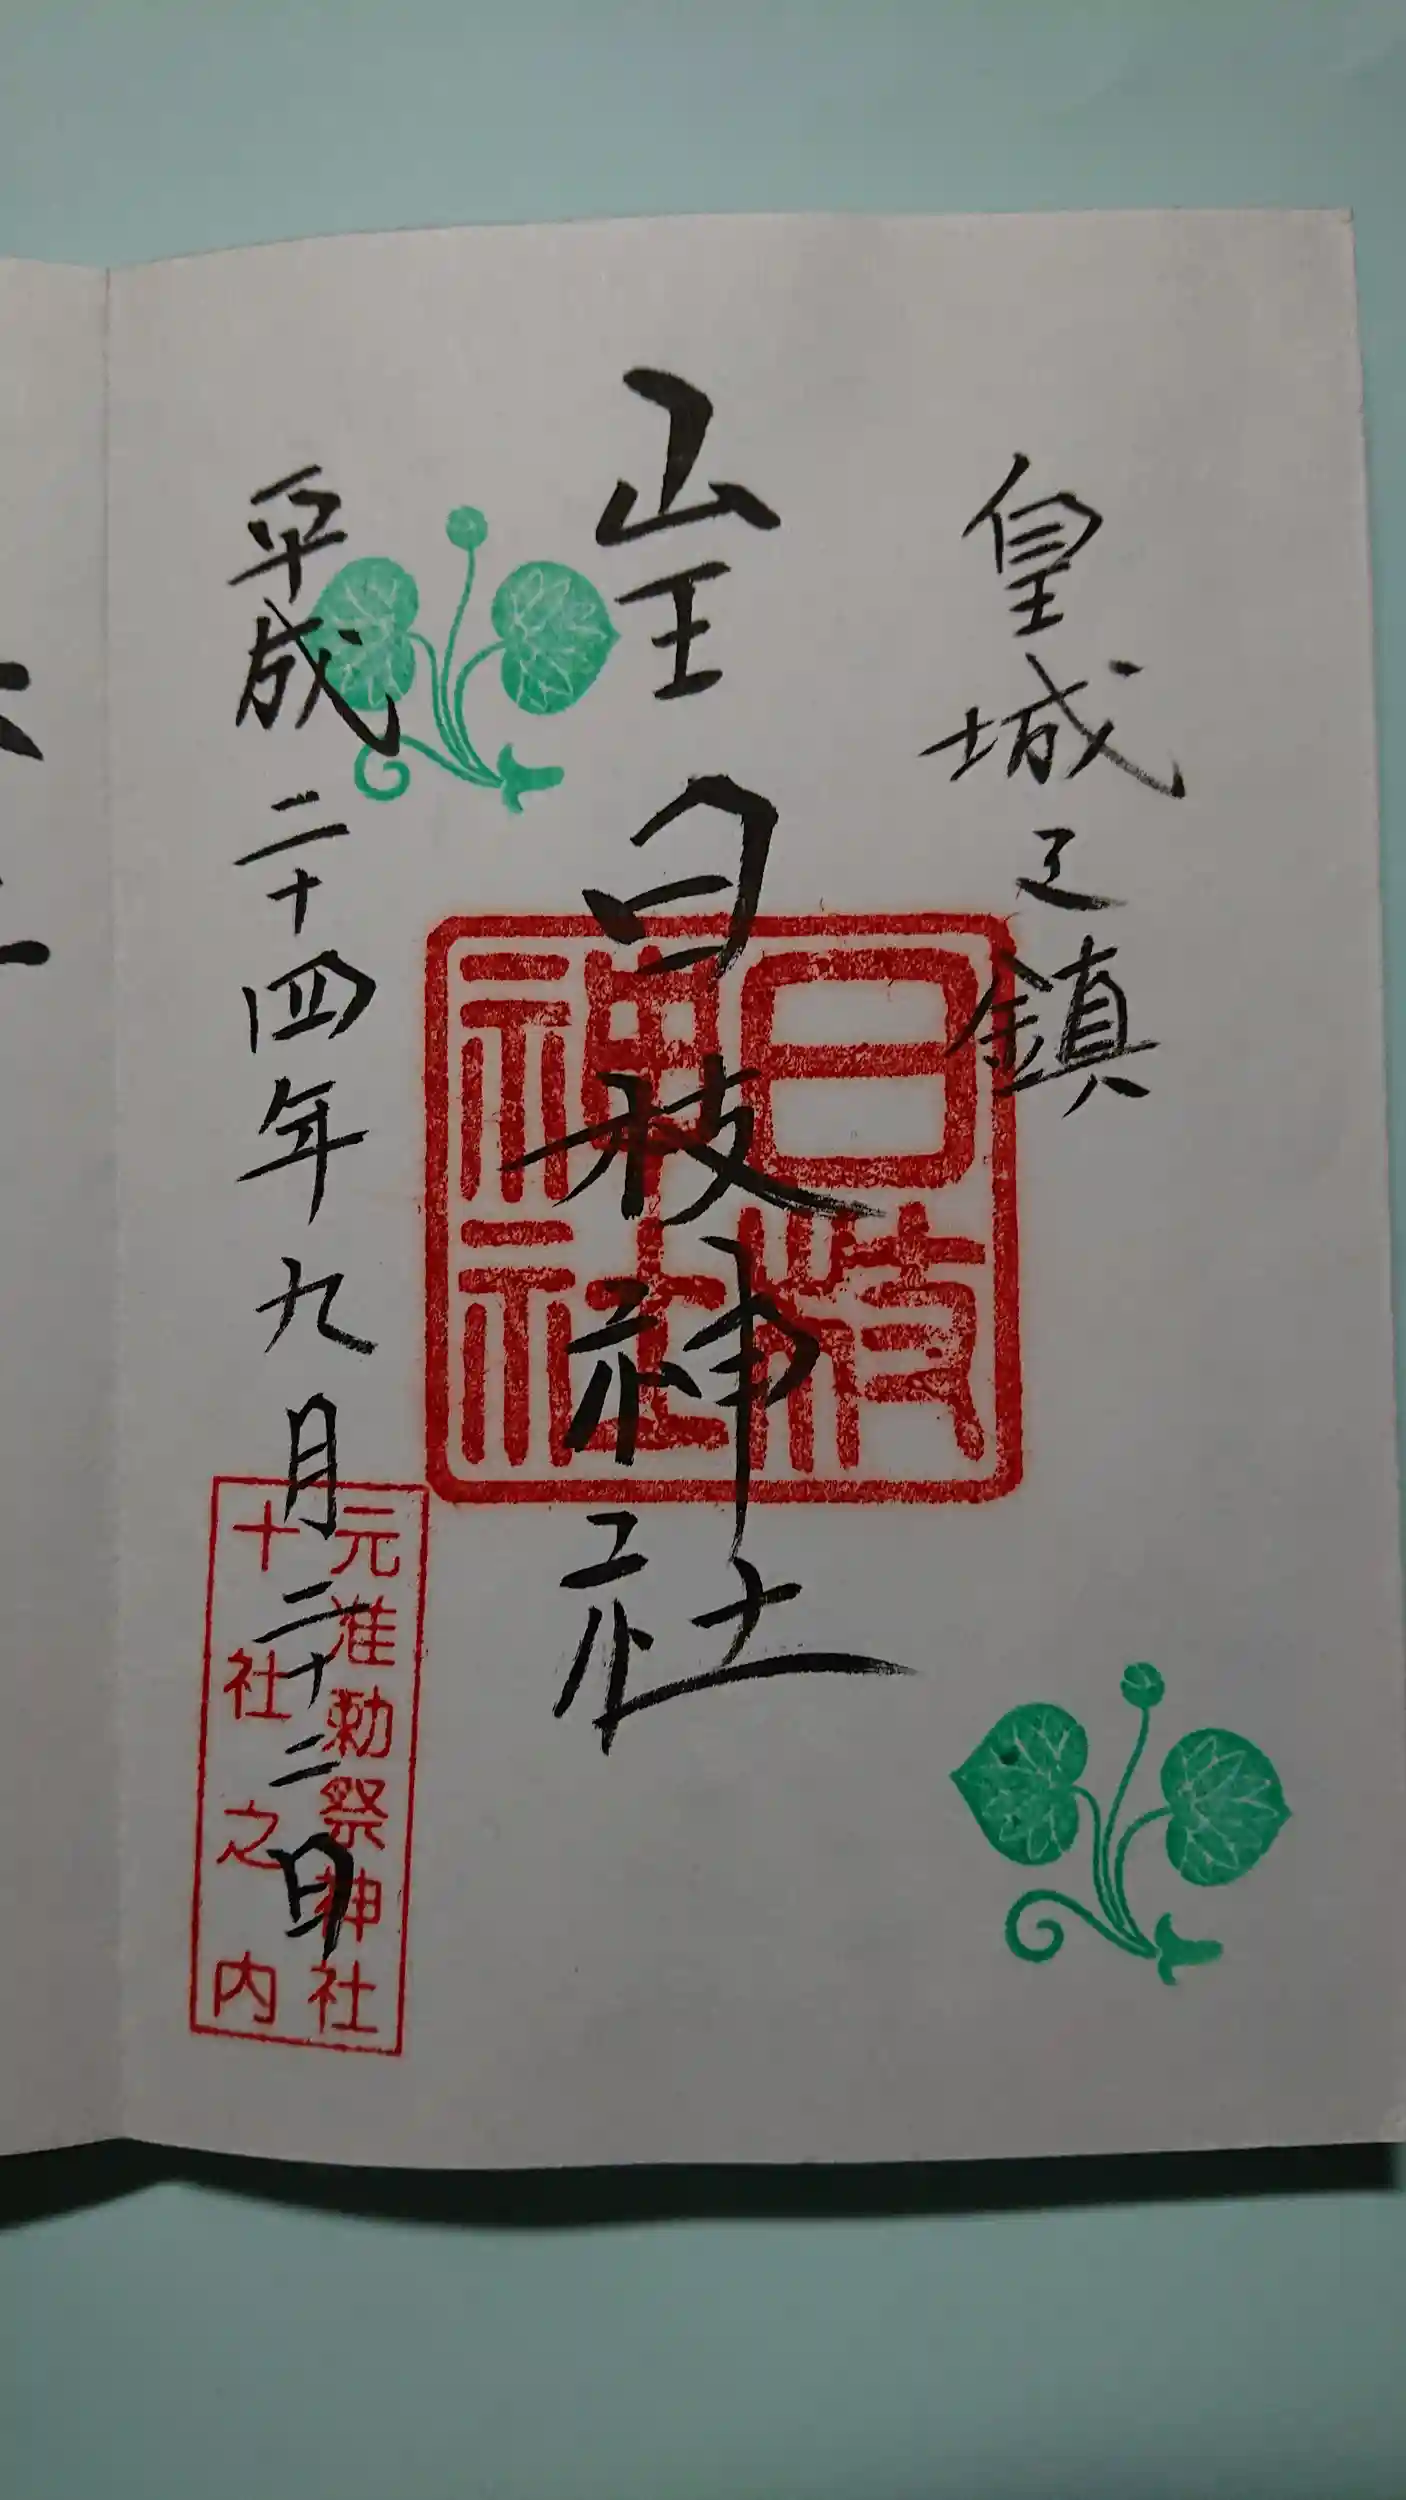 皇城之鎮
山王日枝神社
日枝
神社
平成二十四年九月二十二日
元准勅祭神社
十社之内